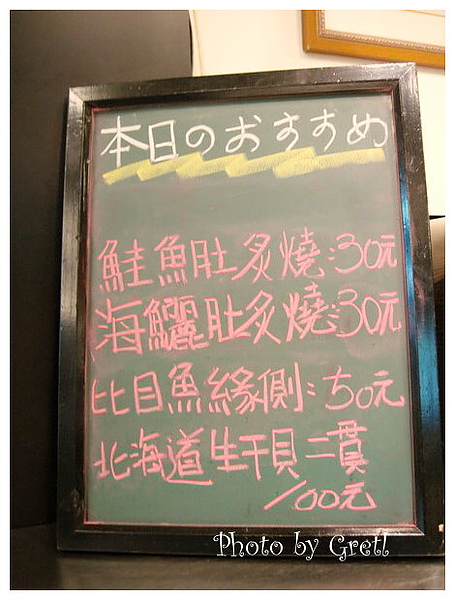 本日のおすすめ
鮭魚肚炙燒:30元
海鱺肚炙燒:30元
比目魚緣側:50元
北海道生干貝二貫
100元
Photo by Gretl